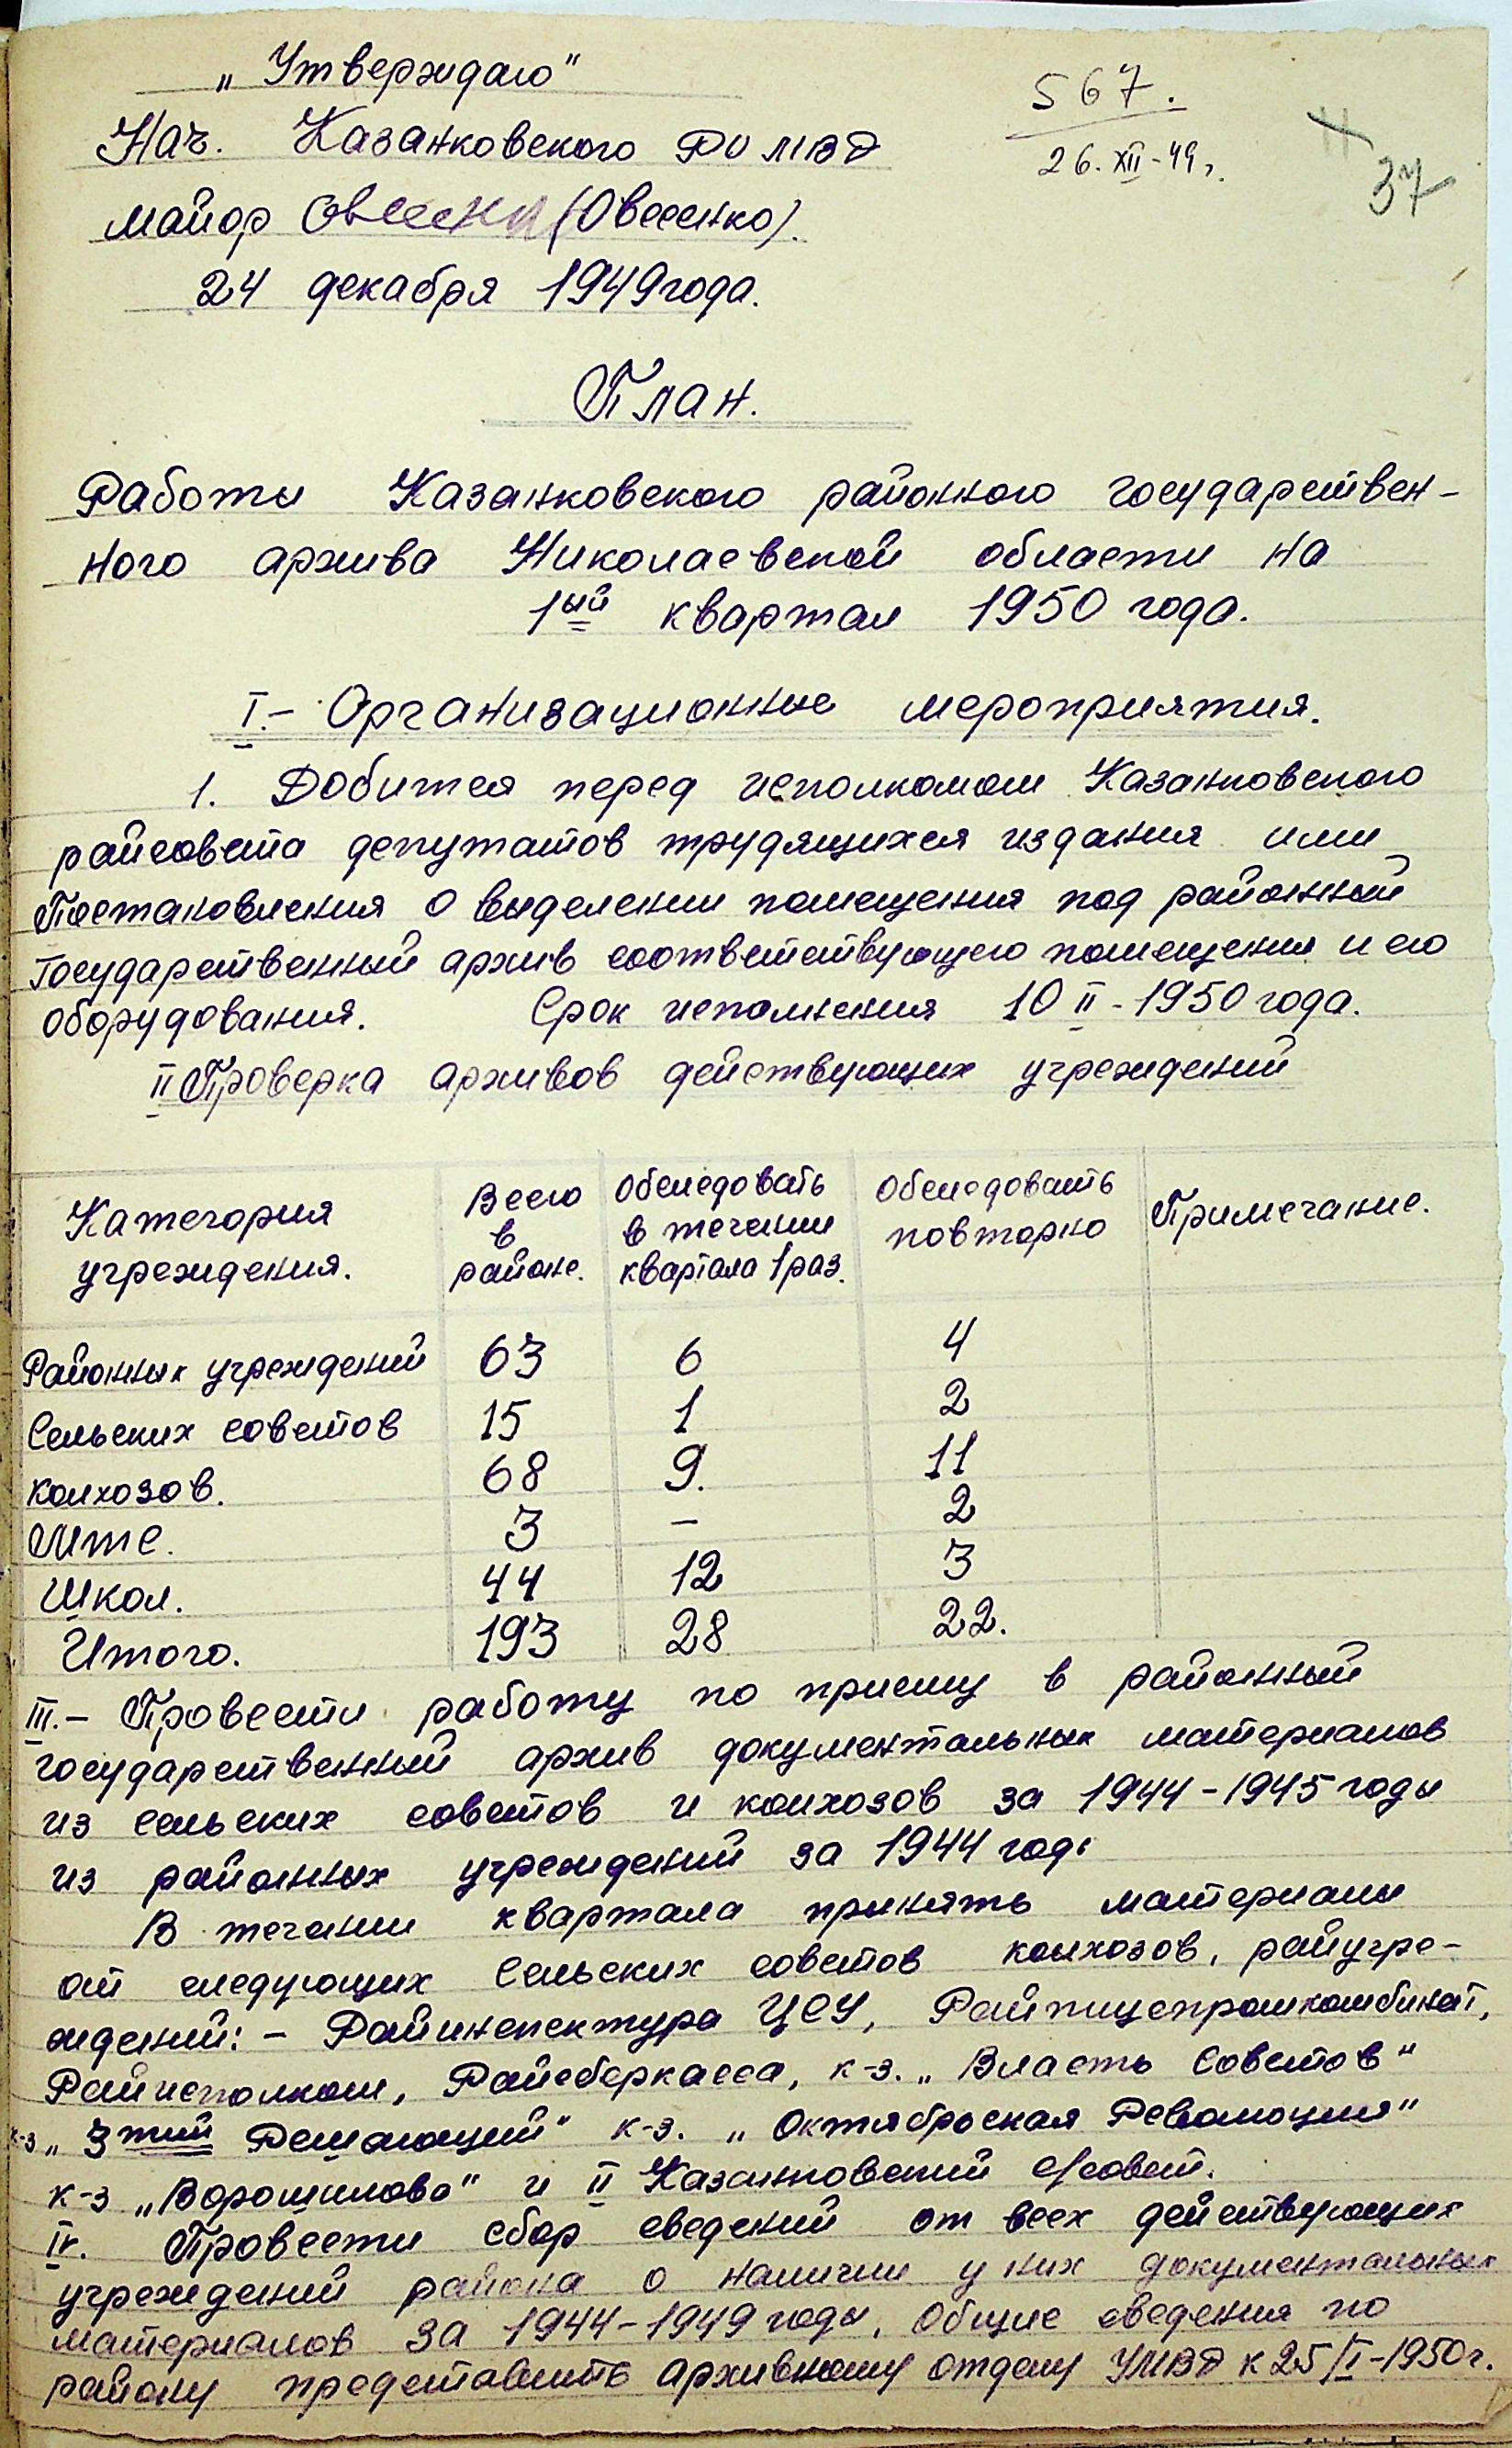 „Утверждаю"
567.
Нач. Казанковского РО МВД
26.XII-49г.
37
майор Овсеенко (Овсеенко).
24 декабря 1949 года.
План.
Работы Казанковского районного государствен-
ного архива Николаевской области на
1ый квартал 1950 года.
I.- Организационные мероприятия.
1. Добитея перед исполкомом Казанковского
райсовета депутатов трудящихся издания ими
Постановления о выделении помещения под районный
Государственный архив соответствующего помещения и его
оборудования. Срок исполнения 10 II-1950 года.
II Проверка архивов действующих учреждений
Категория учреждения. Всего в районе. Обследовать в течении квартала 1 раз. Обследовать повторно Примечание.
Районных учреждений 63 6 4
Сельских советов 15 1 2
Колхозов. 68 9. 11
Мтс. 3 – 2
Школ. 44 12 3
Итого. 193 28 22.
III.- Провести работу по приему в районный
государственный архив документальных материалов
из сельских советов и колхозов за 1944-1945 годы
из районных учреждений за 1944 год.
В течении квартала принять материалы
от следующих Сельских советов колхозов, райучре-
ждений: - Райинспектура ЦСУ, Райпищепромкомбинат,
Райисполком, Райсберкасса, к-з. „Власть Советов"
к-з „3тий Решающий" к-з. „Октяброская Революция"
к-з „Ворошилова" и II Казанковский с/совет.
IV. Провести сбор сведений от всех действующих
учреждений района о наличии у них документальных
материалов за 1944-1949 годы, Общие сведения по
району предоставить Архивному отделу УМВД к 25/I-1950г.